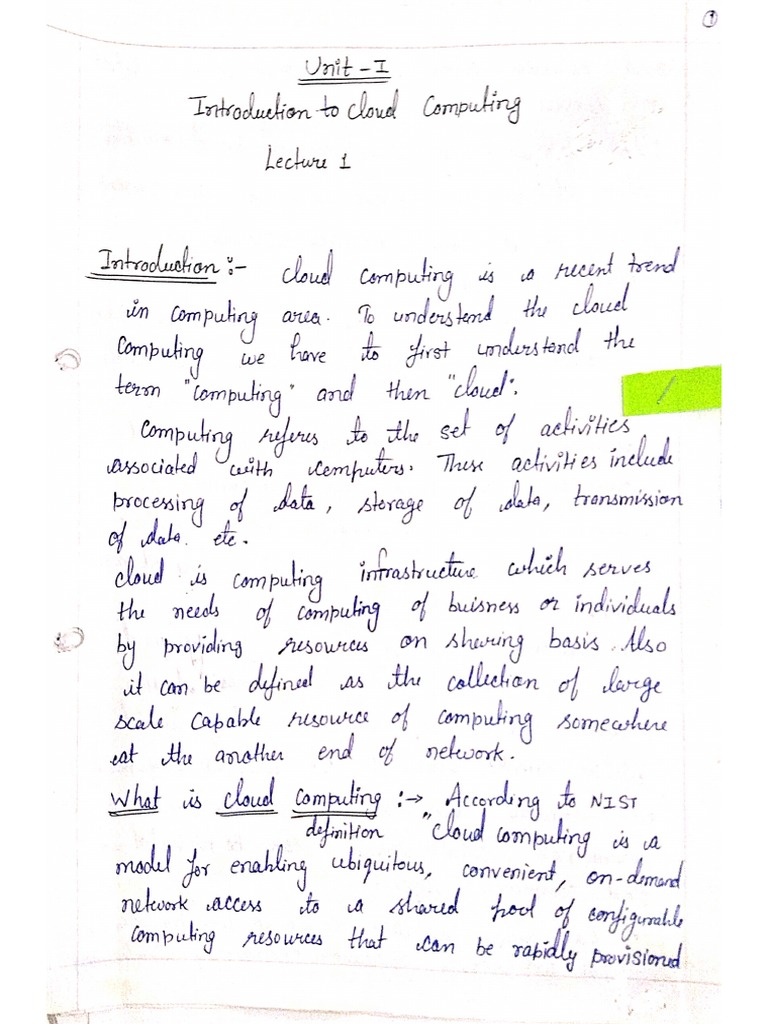 1
Unit - I
Introduction to Cloud Computing
Lecture 1
Introduction :- Cloud computing is a recent trend
in computing area. To understand the cloud
computing we have to first understand the
term "computing" and then "cloud".
Computing referes to the set of activities
associated with computers. These activities include
processing of data, storage of data, transmission
of data. etc.
Cloud is computing infrastructure which serves
the needs of computing of buisness or individuals
by providing resources on sharing basis. Also
it can be defined as the collection of large
scale capable resource of computing somewhere
at the another end of network.
What is cloud computing :→ According to NIST
definition "Cloud computing is a
model for enabling ubiquitous, convenient, on-demand
network access to a shared pool of configurable
computing resources that can be rapidly provisioned